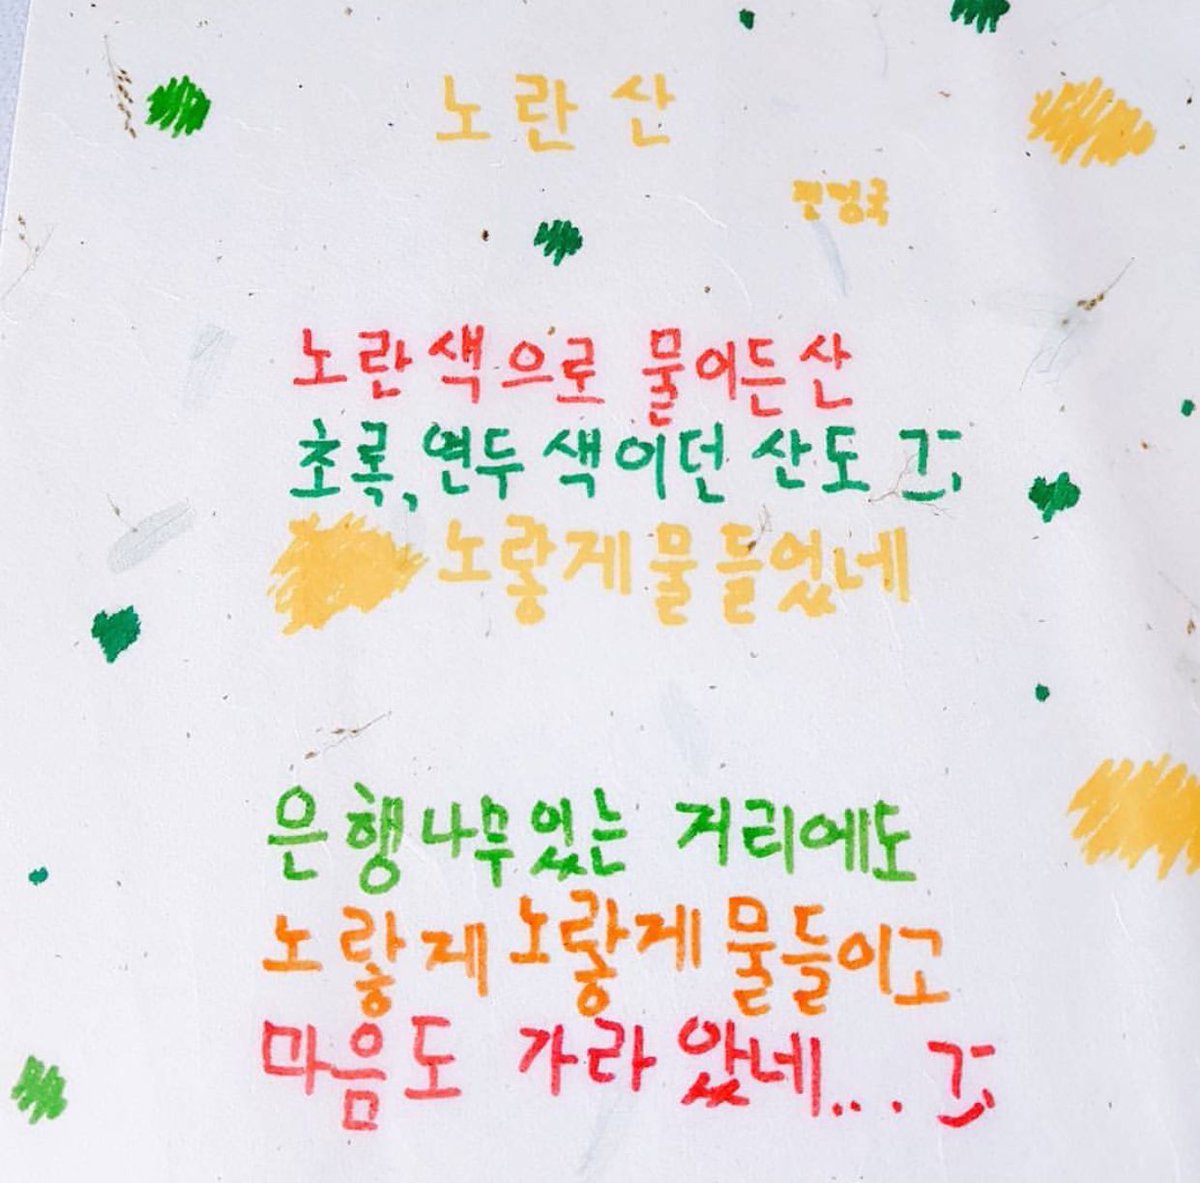 노란산
전정국
노란색으로 물이든산
초록,연두색이던 산도
노랗게물들었네
은행나무있는 거리에도
노랗게 노랗게물들이고
마음도 가라앉네...